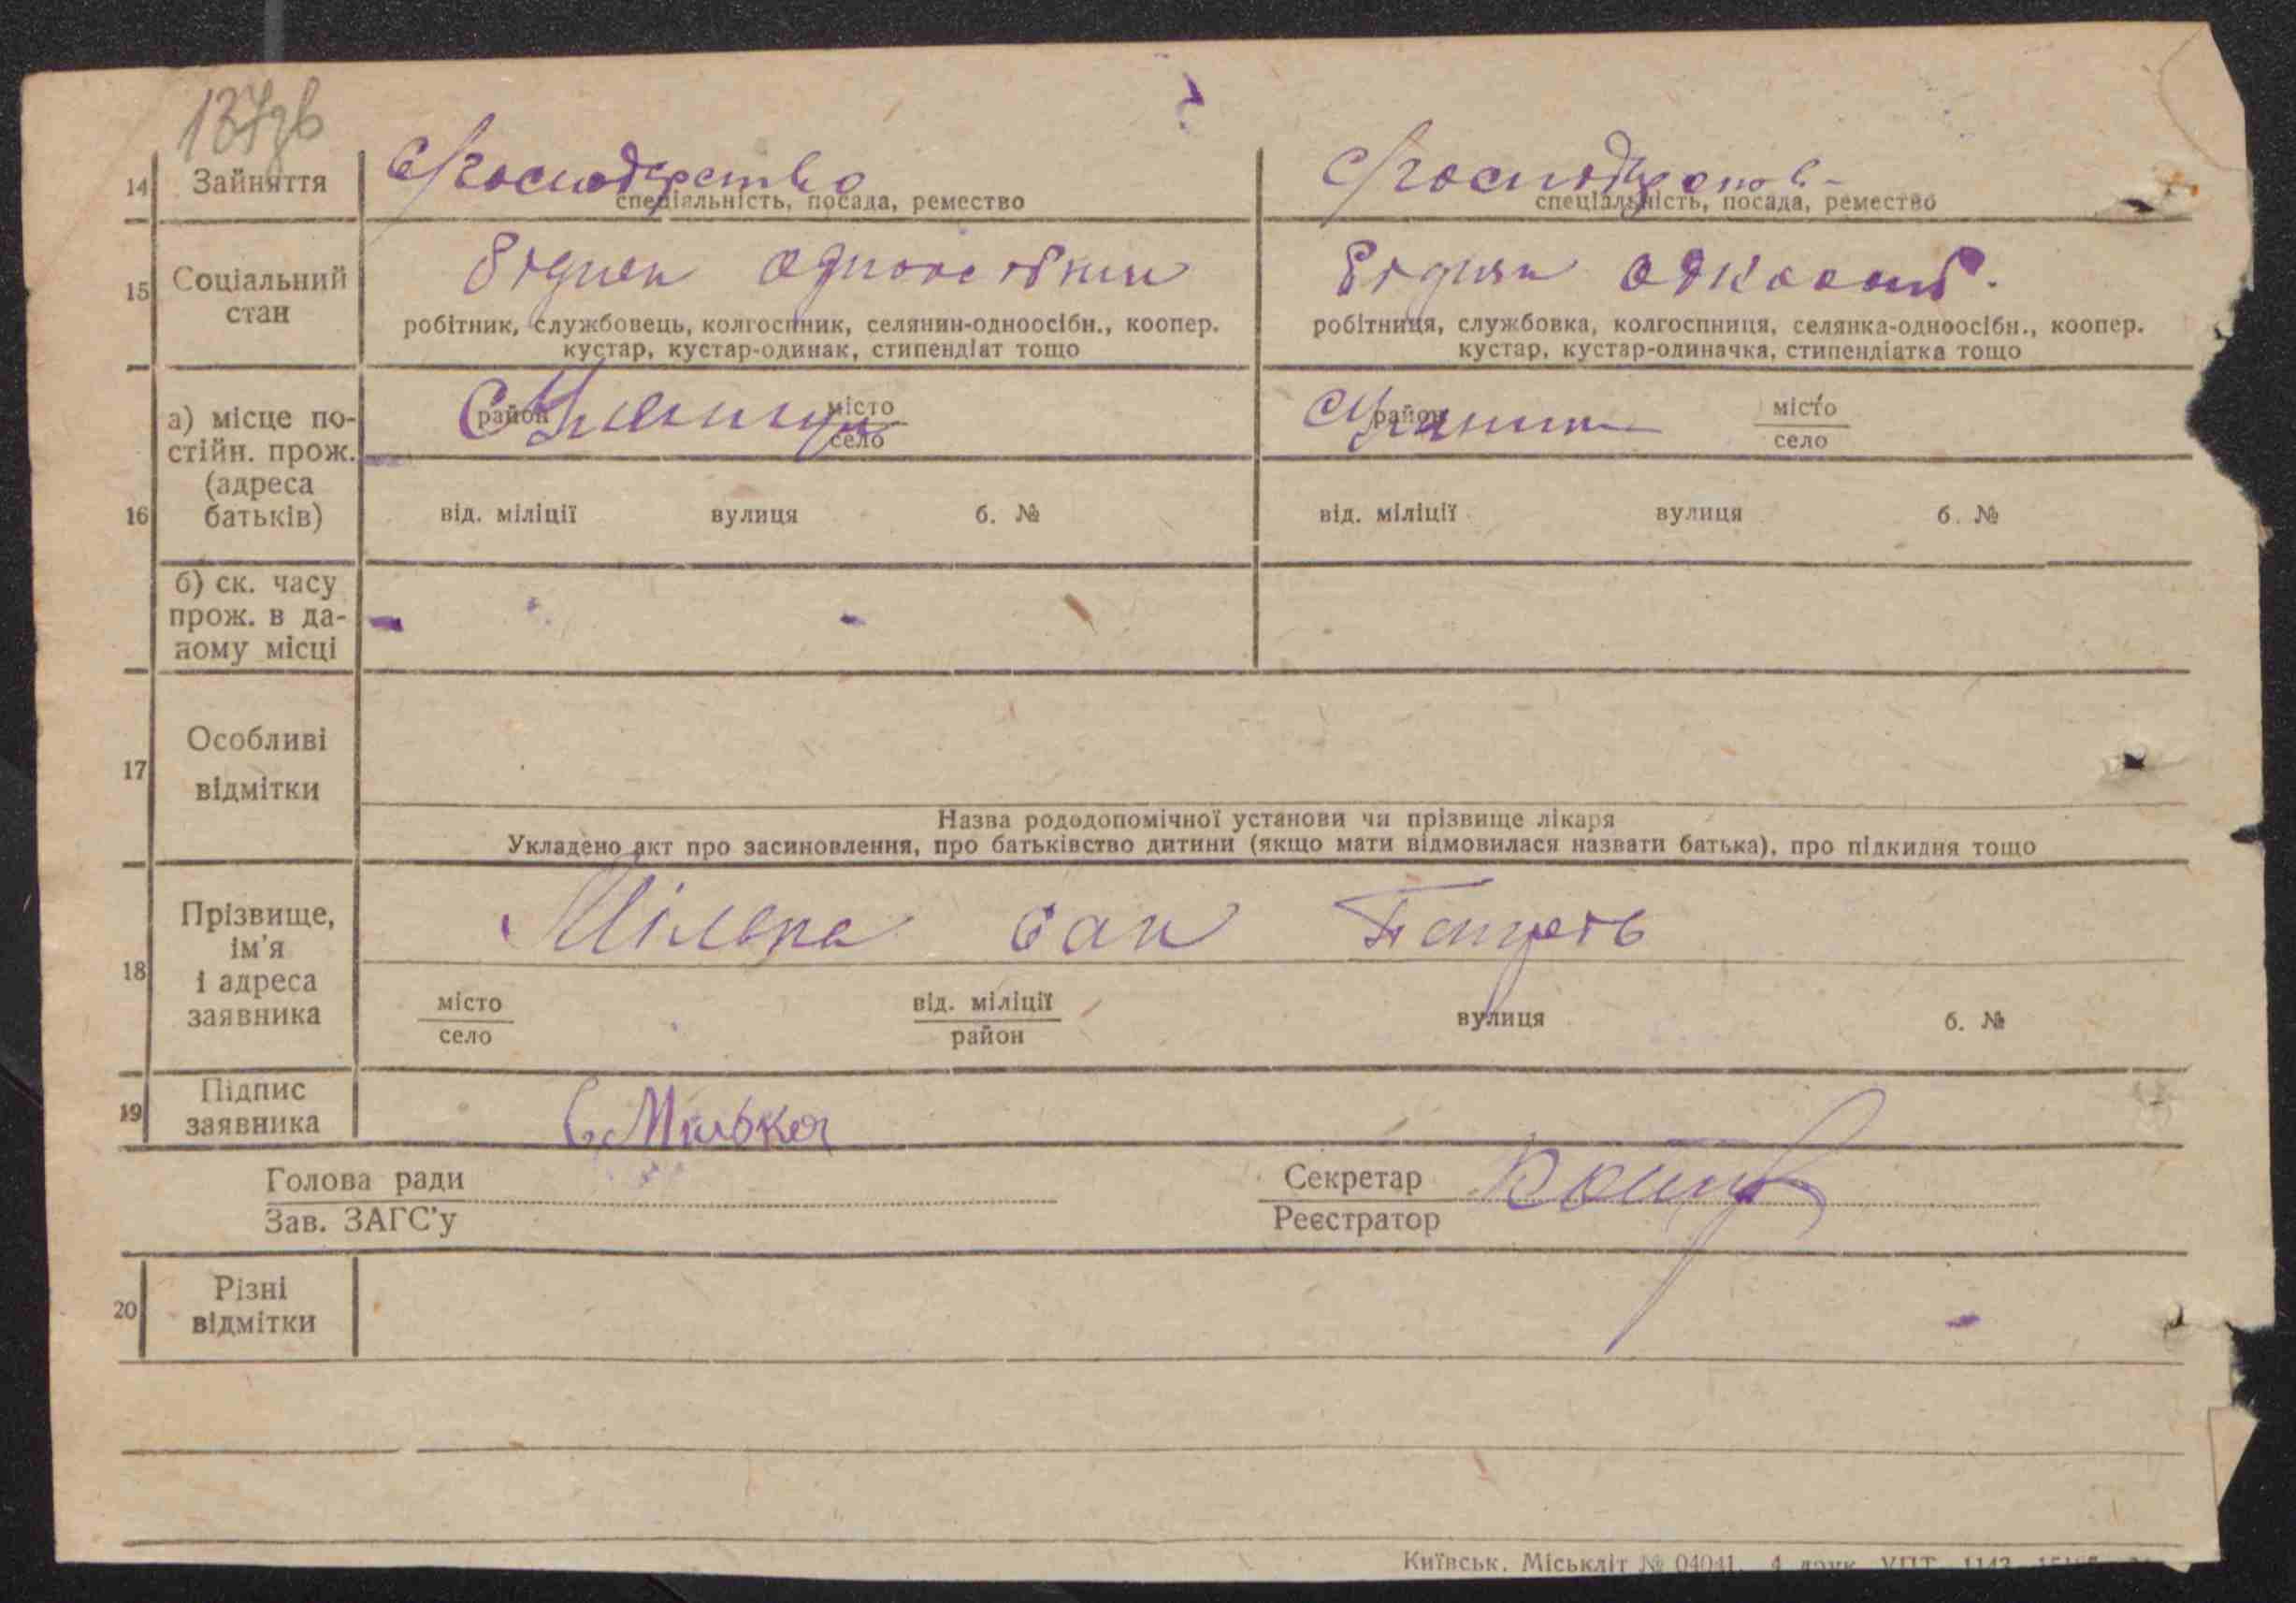 137зв
14 Зайняття
с/господарство
спеціальність, посада, ремество
с/господ
спеціальність, посада, ремество
15 Соціальний стан
бідняк одноосібник
робітник, службовець, колгоспник, селянин-одноосібн., коопер.
кустар, кустар-одинак, стипендіат тощо
бідняк одноосіб.
робітниця, службовка, колгоспниця, селянка-одноосібн., коопер.
кустар, кустар-одиначка, стипендіатка тощо
16 а) місце по-
стійн. прож.
(адреса
батьків)
район місто
село
район місто
село
від. міліції вулиця б. №
від. міліції вулиця б. №
б) ск. часу
прож. в да-
ному місці
17 Особливі
відмітки
Назва рододопомічної установи чи прізвище лікаря
Укладено акт про засиновлення, про батьківство дитини (якщо мати відмовилася назвати батька), про підкидня тощо
18 Прізвище,
ім'я
і адреса
заявника
Мілька
місто від. міліції вулиця б. №
село район
19 Підпис
заявника
Милька
Голова ради
Зав. ЗАГС'у
Секретар
Реєстратор
20 Різні
відмітки
Київськ. Міськліт № 04041. 4 друк. УПТ 1143